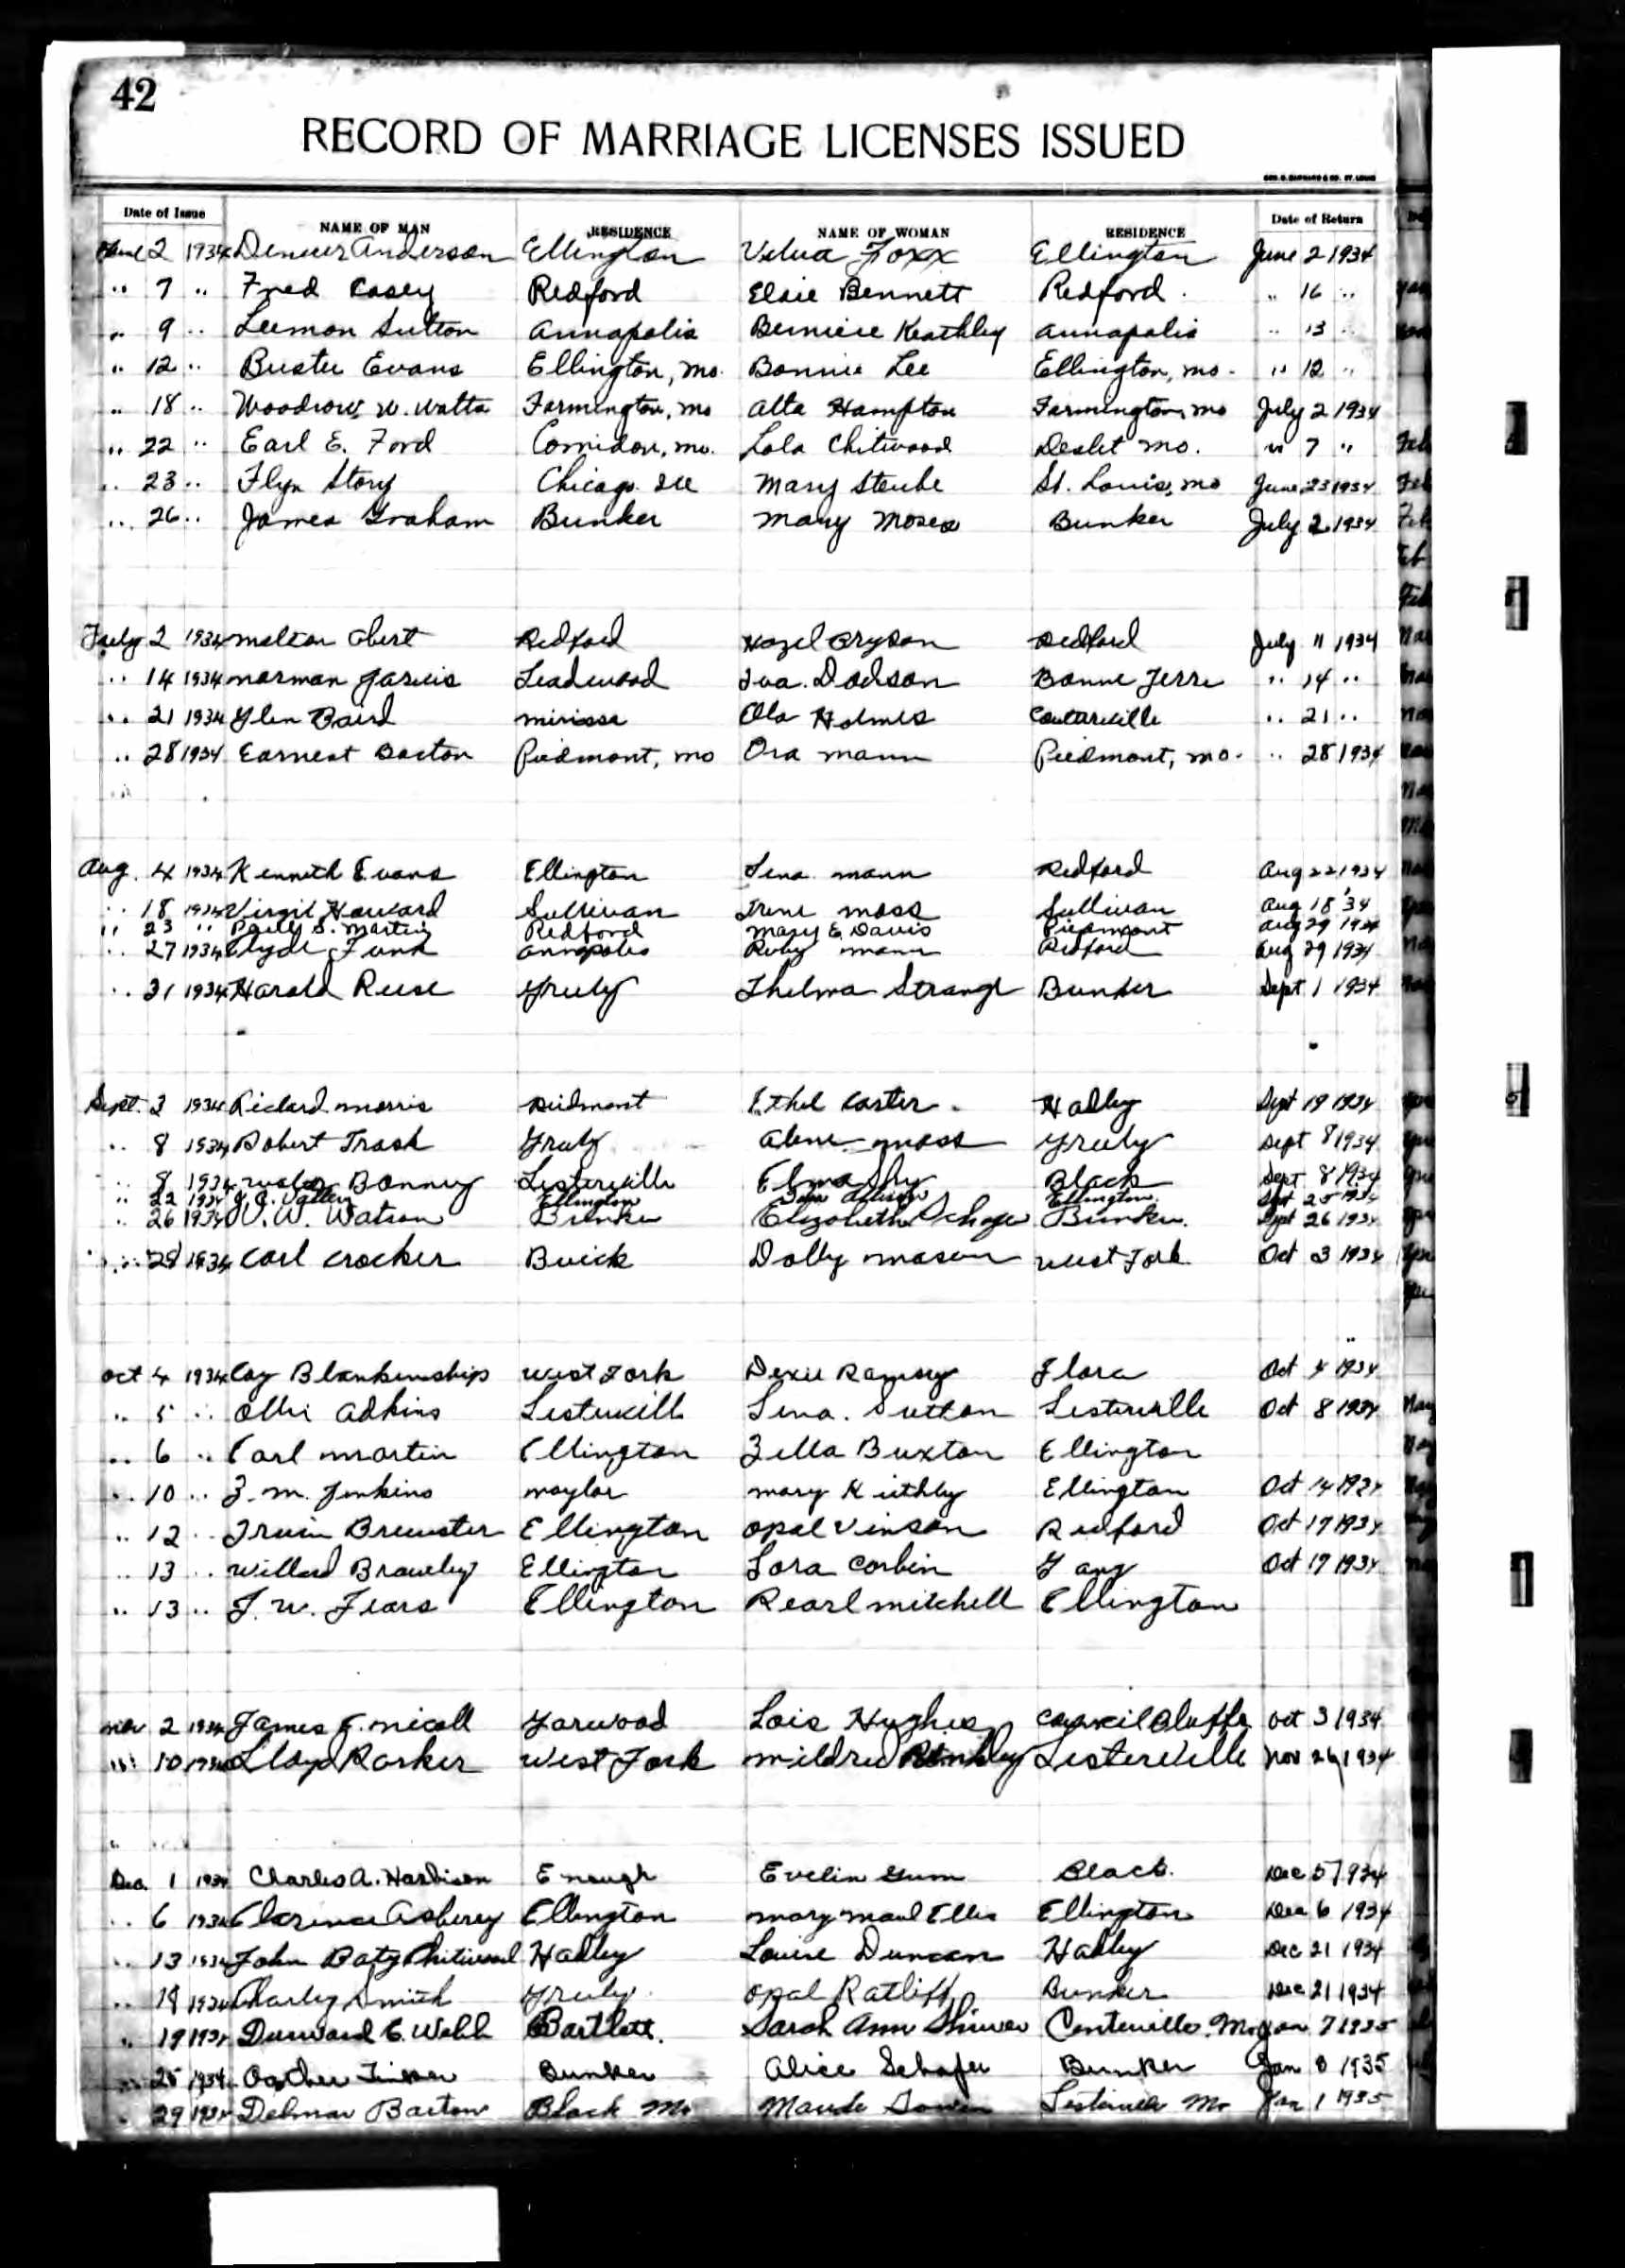 42
RECORD OF MARRIAGE LICENSES ISSUED
GEO. D. BARNARD & CO. ST. LOUIS
Date of Issue NAME OF MAN RESIDENCE NAME OF WOMAN RESIDENCE Date of Return
June 2 1934 Denver Anderson Ellington Velva Foxx Ellington June 2 1934
" 7 " Fred Casey Redford Elsie Bennett Redford. " 16 "
" 9 " Leemon Sutton Annapolis Berniece Keathley Annapolis " 13 "
" 12 " Buster Evans Ellington, Mo. Bonnie Lee Ellington, Mo. " 12 "
" 18 " Woodrow W. Watts Farmington, Mo Alta Hampton Farmington, Mo July 2 1934
" 22 " Earl E. Ford Corridon, Mo. Lola Chitwood Deslet Mo. " 7 "
" 23 " Flyn Story Chicago Ill Mary Steube St. Louis, Mo June 23 1934
" 26 " James Graham Bunker Mary Moses Bunker July 2 1934
July 2 1934 Melton Obert Redford Hazel Bryson Redford July 11 1934
" 14 1934 Norman Jarvis Leadwood Iva. Dodson Bonne Terre " 14 "
" 21 1934 Glen Baird Ola Holmes Coulterville " 21 "
" 28 1934 Earnest Barton Piedmont, Mo Ora Mann Piedmont, Mo. " 28 1934
Aug. 4 1934 Kenneth Evans Ellington Lena Mann Redford Aug 22 1934
" 18 1934 Virgil Howard Sullivan Irene Moss Sullivan Aug 18 '34
" 23 " S. Martin Redford Mary E. Davis Piedmont Aug 29 1934
" 27 1934 Clyde Funk Annapolis Ruby Mann Redford Aug 29 1934
" 31 1934 Harold Reese Yruly Thelma Strange Bunker Sept 1 1934
Sept. 3 1934 Richard Morris Piedmont Ethel Carter. Hadley Sept 19 1934
" 8 1934 Robert Trask Yruly Alene Moss Yruly Sept 8 1934
" 8 1934 Bonney Lesterville Elma Shy Black Sept 8 1934
" 22 1934 Ellington Allison Ellington Sept 25 1934
" 26 1934 V. W. Watson Bunker Elizabeth Schafer Bunker. Sept 26 1934
" 28 1934 Carl Crocker Buick Dolly Mason West Fork Oct 3 1934
Oct 4 1934 Coy Blankenship West Fork Dexie Ramsey Flora Oct 4 1934
" 5 " Ollie Adkins Lesterville Lena. Sutton Lesterville Oct 8 1934
" 6 " Carl Martin Ellington Zella Buxton Ellington
" 10 " Z. M. Jenkins Naylor Mary Keithly Ellington Oct 14 1934
" 12 " Irvin Brewster Ellington Opal Vinson Redford Oct 17 1934
" 13 " Willard Brawley Ellington Lora Corbin Gang Oct 17 1934
" 13 " J. W. Fears Ellington Pearl Mitchell Ellington
Nov 2 1934 James Nicoll Yarwood Lois Hughes Council Bluffs Oct 3 1934
" 10 1934 Lloyd Parker West Fork Mildred Lesterville Nov 26 1934
Dec. 1 1934 Charles A. Harbison Enough Evelin Gum Black. Dec 5 1934
" 6 1934 Clarence Asberry Ellington Mary Maud Ellis Ellington Dec 6 1934
" 13 1934 John Baty Chitwood Hadley Louise Duncan Hadley Dec 21 1934
" 18 1934 Charley Smith Yruly Opal Ratliff Bunker Dec 21 1934
" 19 1934 Durward E. Webb Bartlett. Sarah Ann Shriver Centerville, Mo Jan 7 1935
" 25 1934 Tinker Bunker Alice Schafer Bunker Jan 8 1935
" 29 1934 Delmar Barton Black Mo Maude Lesterville Mo Jan 1 1935